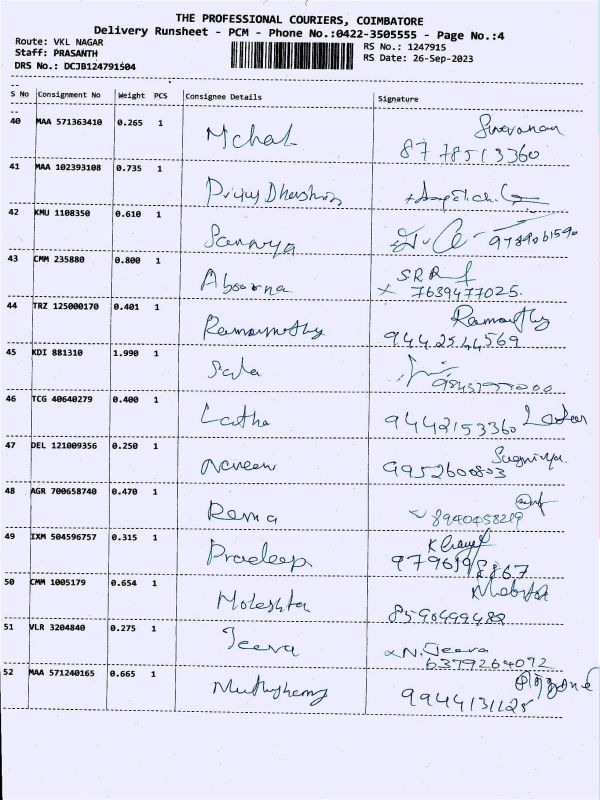 THE PROFESSIONAL COURIERS, COIMBATORE
Delivery Runsheet - PCM - Phone No.:0422-3505555 - Page No.:4
Route: VKL NAGAR RS No.: 1247915
Staff: PRASANTH RS Date: 26-Sep-2023
DRS No.: DCJB124791504
S No Consignment No Weight PCS Consignee Details Signature
40 MAA 571363410 0.265 1
8778513360
41 MAA 102393108 0.735 1
42 KMU 1108350 0.610 1 9789061590
43 CMM 235880 0.800 1 SRR
7639477025.
44 TRZ 125000170 0.401 1 Ramamoorthy
9442544569
45 KDI 881310 1.990 1 Sala
46 TCG 40640279 0.400 1 Latha 9442153360
47 DEL 121009356 0.250 1 Naveen
9952600803
48 AGR 700658740 0.470 1 Rema
8940458219
49 IXM 504596757 0.315 1 Pradeep
9796198867
50 CMM 1005179 0.654 1
8590499482
51 VLR 3204840 0.275 1 Jeeva N. Jeeva
6379264072
52 MAA 571240165 0.665 1
9944131125